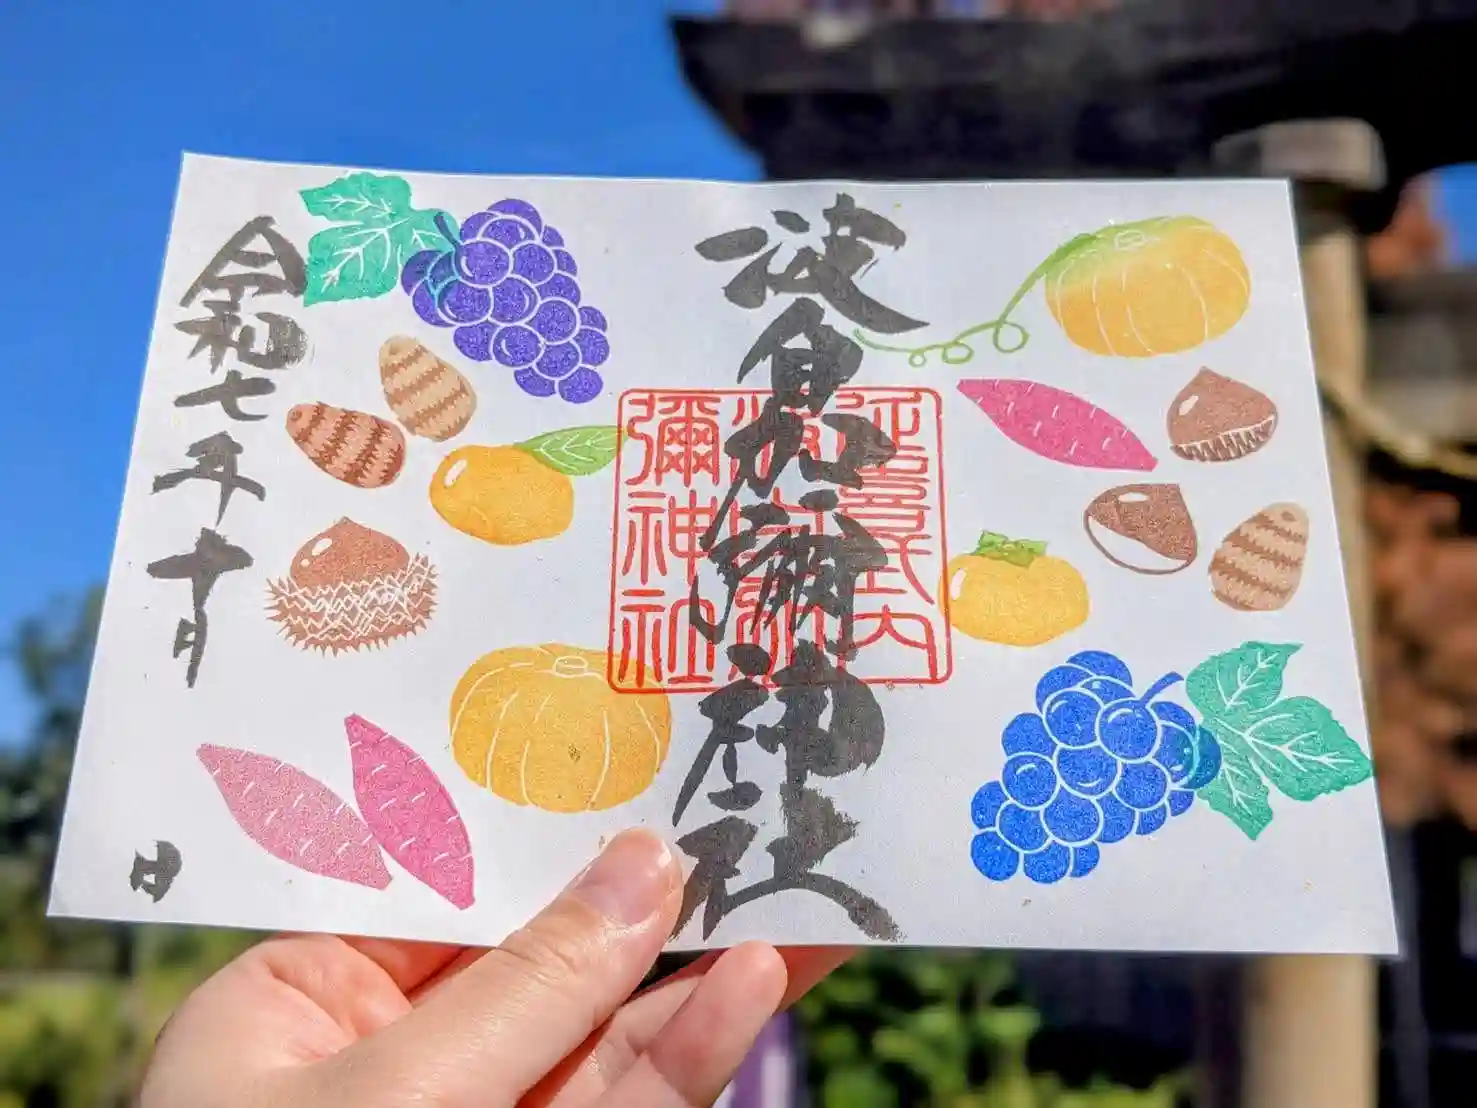 波自加彌神社
延喜式内
波自加
彌神社
令和七年十月 日